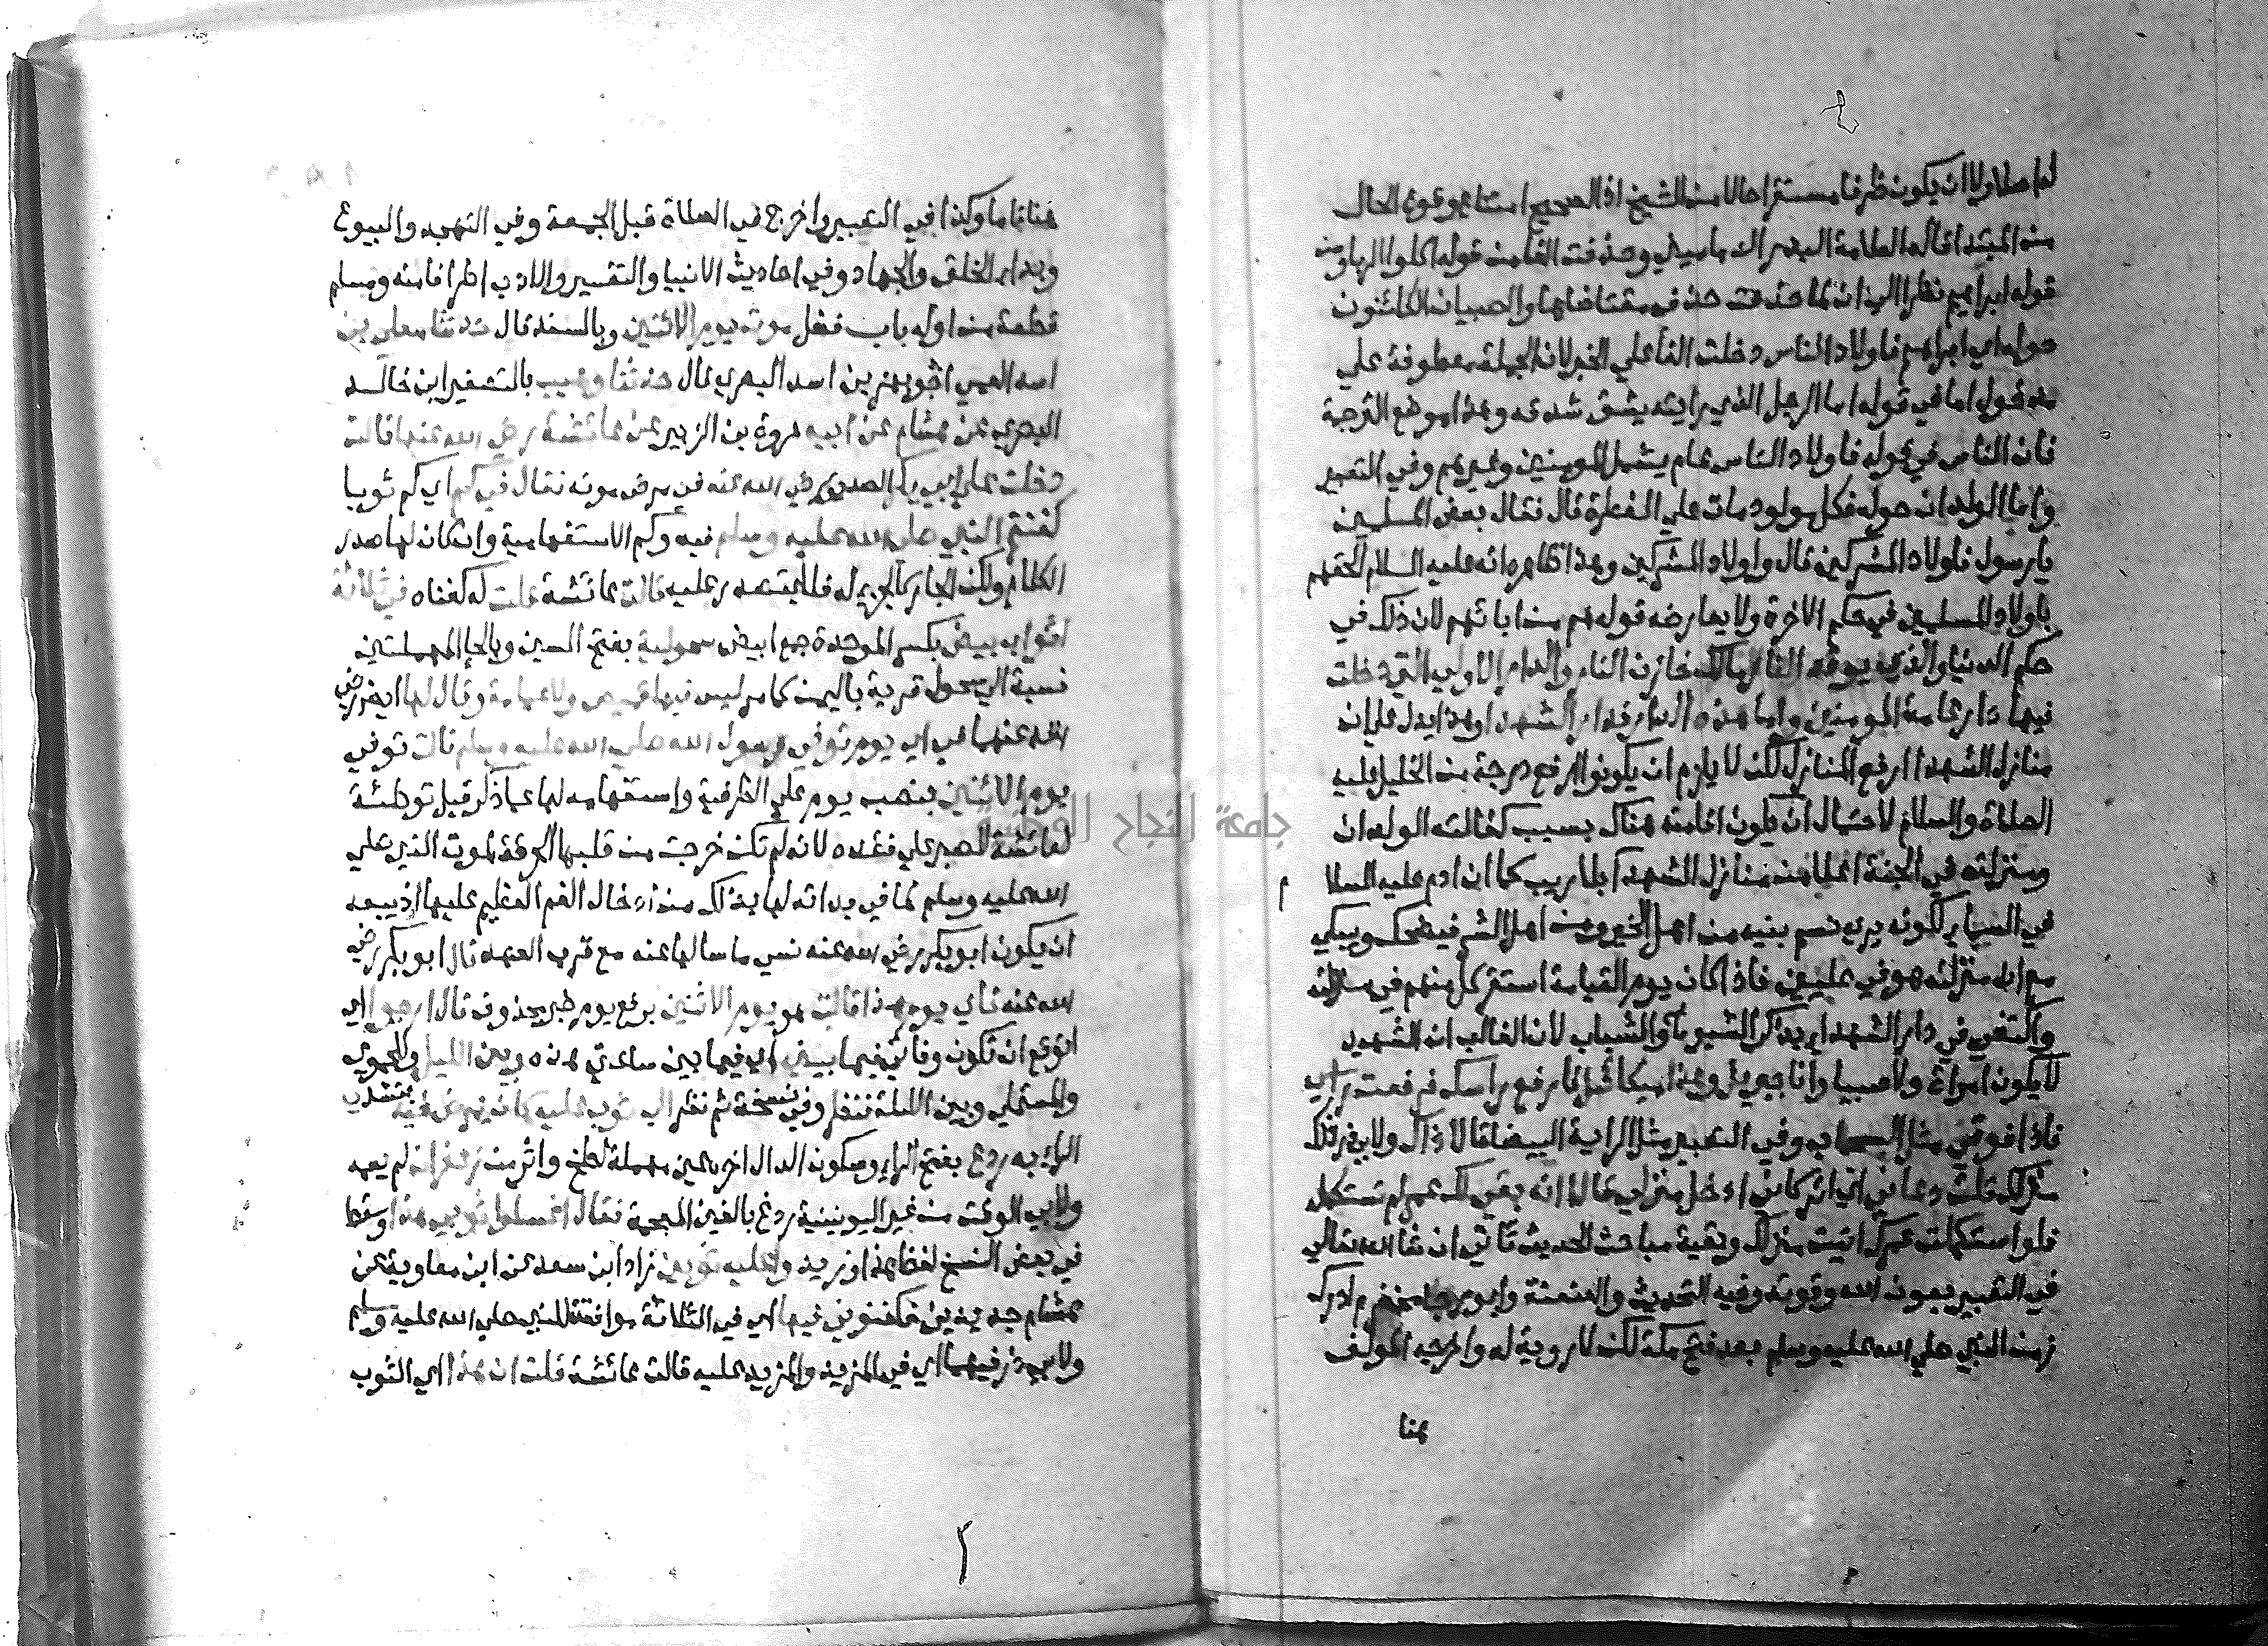 لها صلا ولا ان يكون ظرفا مستقرا حالا من الشيخ اذ الصحيح امتناع وقوع الحال
من المبتدا قاله العلامة البدر الدماميني وحذفت الفا من قوله اكلوا الربا ومن
قوله ابراهيم نظرا الى ان اما حذفت حذف مقتضاها والصبيان الكائنون
حوله اي ابراهيم فاولاد الناس دخلت الفا على الخبر لان الجملة معطوفة على
مدخول اما في قوله اما الرجل الذي رايته يشق شدقه وهذا موضع الترجمة
فان الناس في قوله فاولاد الناس عام يشمل المومنين وغيرهم وفي التعبير
واما الولدان حوله فكل مولود مات على الفطرة قال فقال بعض المسلمين
يا رسول فاولاد المشركين قال واولاد المشركين وهذا ظاهره انه عليه السلام الحقهم
باولاد المسلمين في حكم الاخرة ولا يعارضه قوله هم من ابائهم لان ذلك في
حكم الدنيا والذي يوقد النار مالك خازن النار والدار الاولى التي دخلت
فيها دار عامة المومنين واما هذه الدار فدار الشهدا وهذا يدل على ان
منازل الشهدا ارفع المنازل لكن لا يلزم ان يكونوا ارفع درجة من الخليل عليه
الصلاة والسلام لاحتمال ان يكون اقامته هناك بسبب كفالته الولدان
ومنزلته في الجنة اعلا من منازل الشهدا بلا ريب كما ان ادم عليه السلا م
في السما لكونه يرى نسم بنيه من اهل الخير ومن اهل الشر فيضحك ويبكي
مع ان منزلته هو في عليين فاذا كان يوم القيامة استقر كل منهم في منزلته
واكتفى في دار الشهدا بذكر الشيوخ والشباب لان الغالب ان الشهيد
لا يكون امراة ولا صبيا وانا جبريل وهذا ميكائيل فارفع راسك فرفعت راسي
فاذا فوقي مثل السحاب وفي التعبير مثل الربابة البيضا قالا ذاك ولابي ذر ذلك
منزلك قلت دعاني اي اتركاني ادخل منزلي قالا انه بقي لك عمر لم تستكمله
فلو استكملت عمرك اتيت منزلك وبقية مباحث الحديث تاتي ان شا الله تعالى
في التعبير بعون الله وقوته وفيه التحديث والعنعنة وابو رجا مخضرم ادرك
زمن النبي صلى الله عليه وسلم بعد فتح مكة لكن لا روية له واخرجه المولف
هنا
هنا تاما وكذا في التعبير واخرج في الصلاة قبل الجمعة وفي التهجد والبيوع
وبدا الخلق والجهاد وفي احاديث الانبيا والتفسير والادب اطرافا منه ومسلم
قطعة من اوله باب فضل موت يوم الاثنين وبالسند قال حدثنا معلى بن
اسد العمي اخو بهز بن اسد البصري قال حدثنا وهيب بالتصغير ابن خالد
البصري عن هشام عن ابيه عروة بن الزبير عن عائشة رضي الله عنها قالت
دخلت على ابي بكر الصديق رضي الله عنه في مرض موته فقال في كم اي كم ثوبا
كفنتم النبي صلى الله عليه وسلم فيه وكم الاستفهامية وان كان لها صدر
الكلام ولكن الجار كالجز له فلا يتصدر عليه قالت عائشة قلت له كفناه في ثلاثة
اثواب بيض بكسر الموحدة جمع ابيض سحولية بفتح السين وبالحا المهملتين
نسبة الى سحول قرية باليمن كما مر ليس فيها قميص ولا عمامة وقال لها ايضا رضي
الله عنهما في اي يوم توفي رسول الله صلى الله عليه وسلم قالت توفي
يوم الاثنين بنصب يوم على الظرفية واستفهامه لها عما ذكر قيل توطئة
لعائشة للصبر على فقده لانه لم تكن خرجت من قلبها الحرقة لموت النبي صلى
الله عليه وسلم لما في بداته لها بذلك من ادخال الغم العظيم عليها اذ يبعد
ان يكون ابو بكر رضي الله عنه نسي ما سالها عنه مع قرب العهد قال ابو بكر رضي
الله عنه فاي يوم هذا قالت هو يوم الاثنين برفع يوم خبر محذوف قال ارجوا اي
اتوقع ان تكون وفاتي فيما بيني اي فيما بين ساعتي هذه وبين الليل وللحموي
والمستملي وبين الليلة فنظر وفي نسخة ثم نظر الى ثوب عليه كان يمرض فيه بتشديد
الرا به ردع بفتح الرا وسكون الدال اخره عين مهملة لطخ واثر من زعفران لم يعمه
ولابي الوقت من غير اليونينية ردغ بالغين المعجمة فقال اغسلوا ثوبي هذا وسقط
في بعض النسخ لفظ هذا وزيدوا عليه ثوبين زاد ابن سعد عن ابن معاوية عن
هشام جديدين فكفنوني فيها اي في الثلاثة موافقة للنبي صلى الله عليه وسلم
ولابي ذر فيهما اي في المزيد والمزيد عليه قالت عائشة قلت ان هذا اي الثوب
جامعة النجاح الوطنية